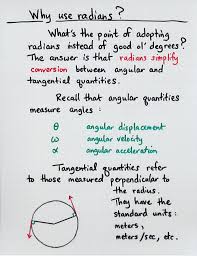 Why use radians?
What's the point of adopting
radians instead of good ol' degrees?
The answer is that radians simplify
conversion between angular and
tangential quantities.
Recall that angular quantities
measure angles:
θ angular displacement
ω angular velocity
α angular acceleration
Tangential quantities refer
to those measured perpendicular to
the radius.
They have the
standard units:
meters,
meters/sec, etc.